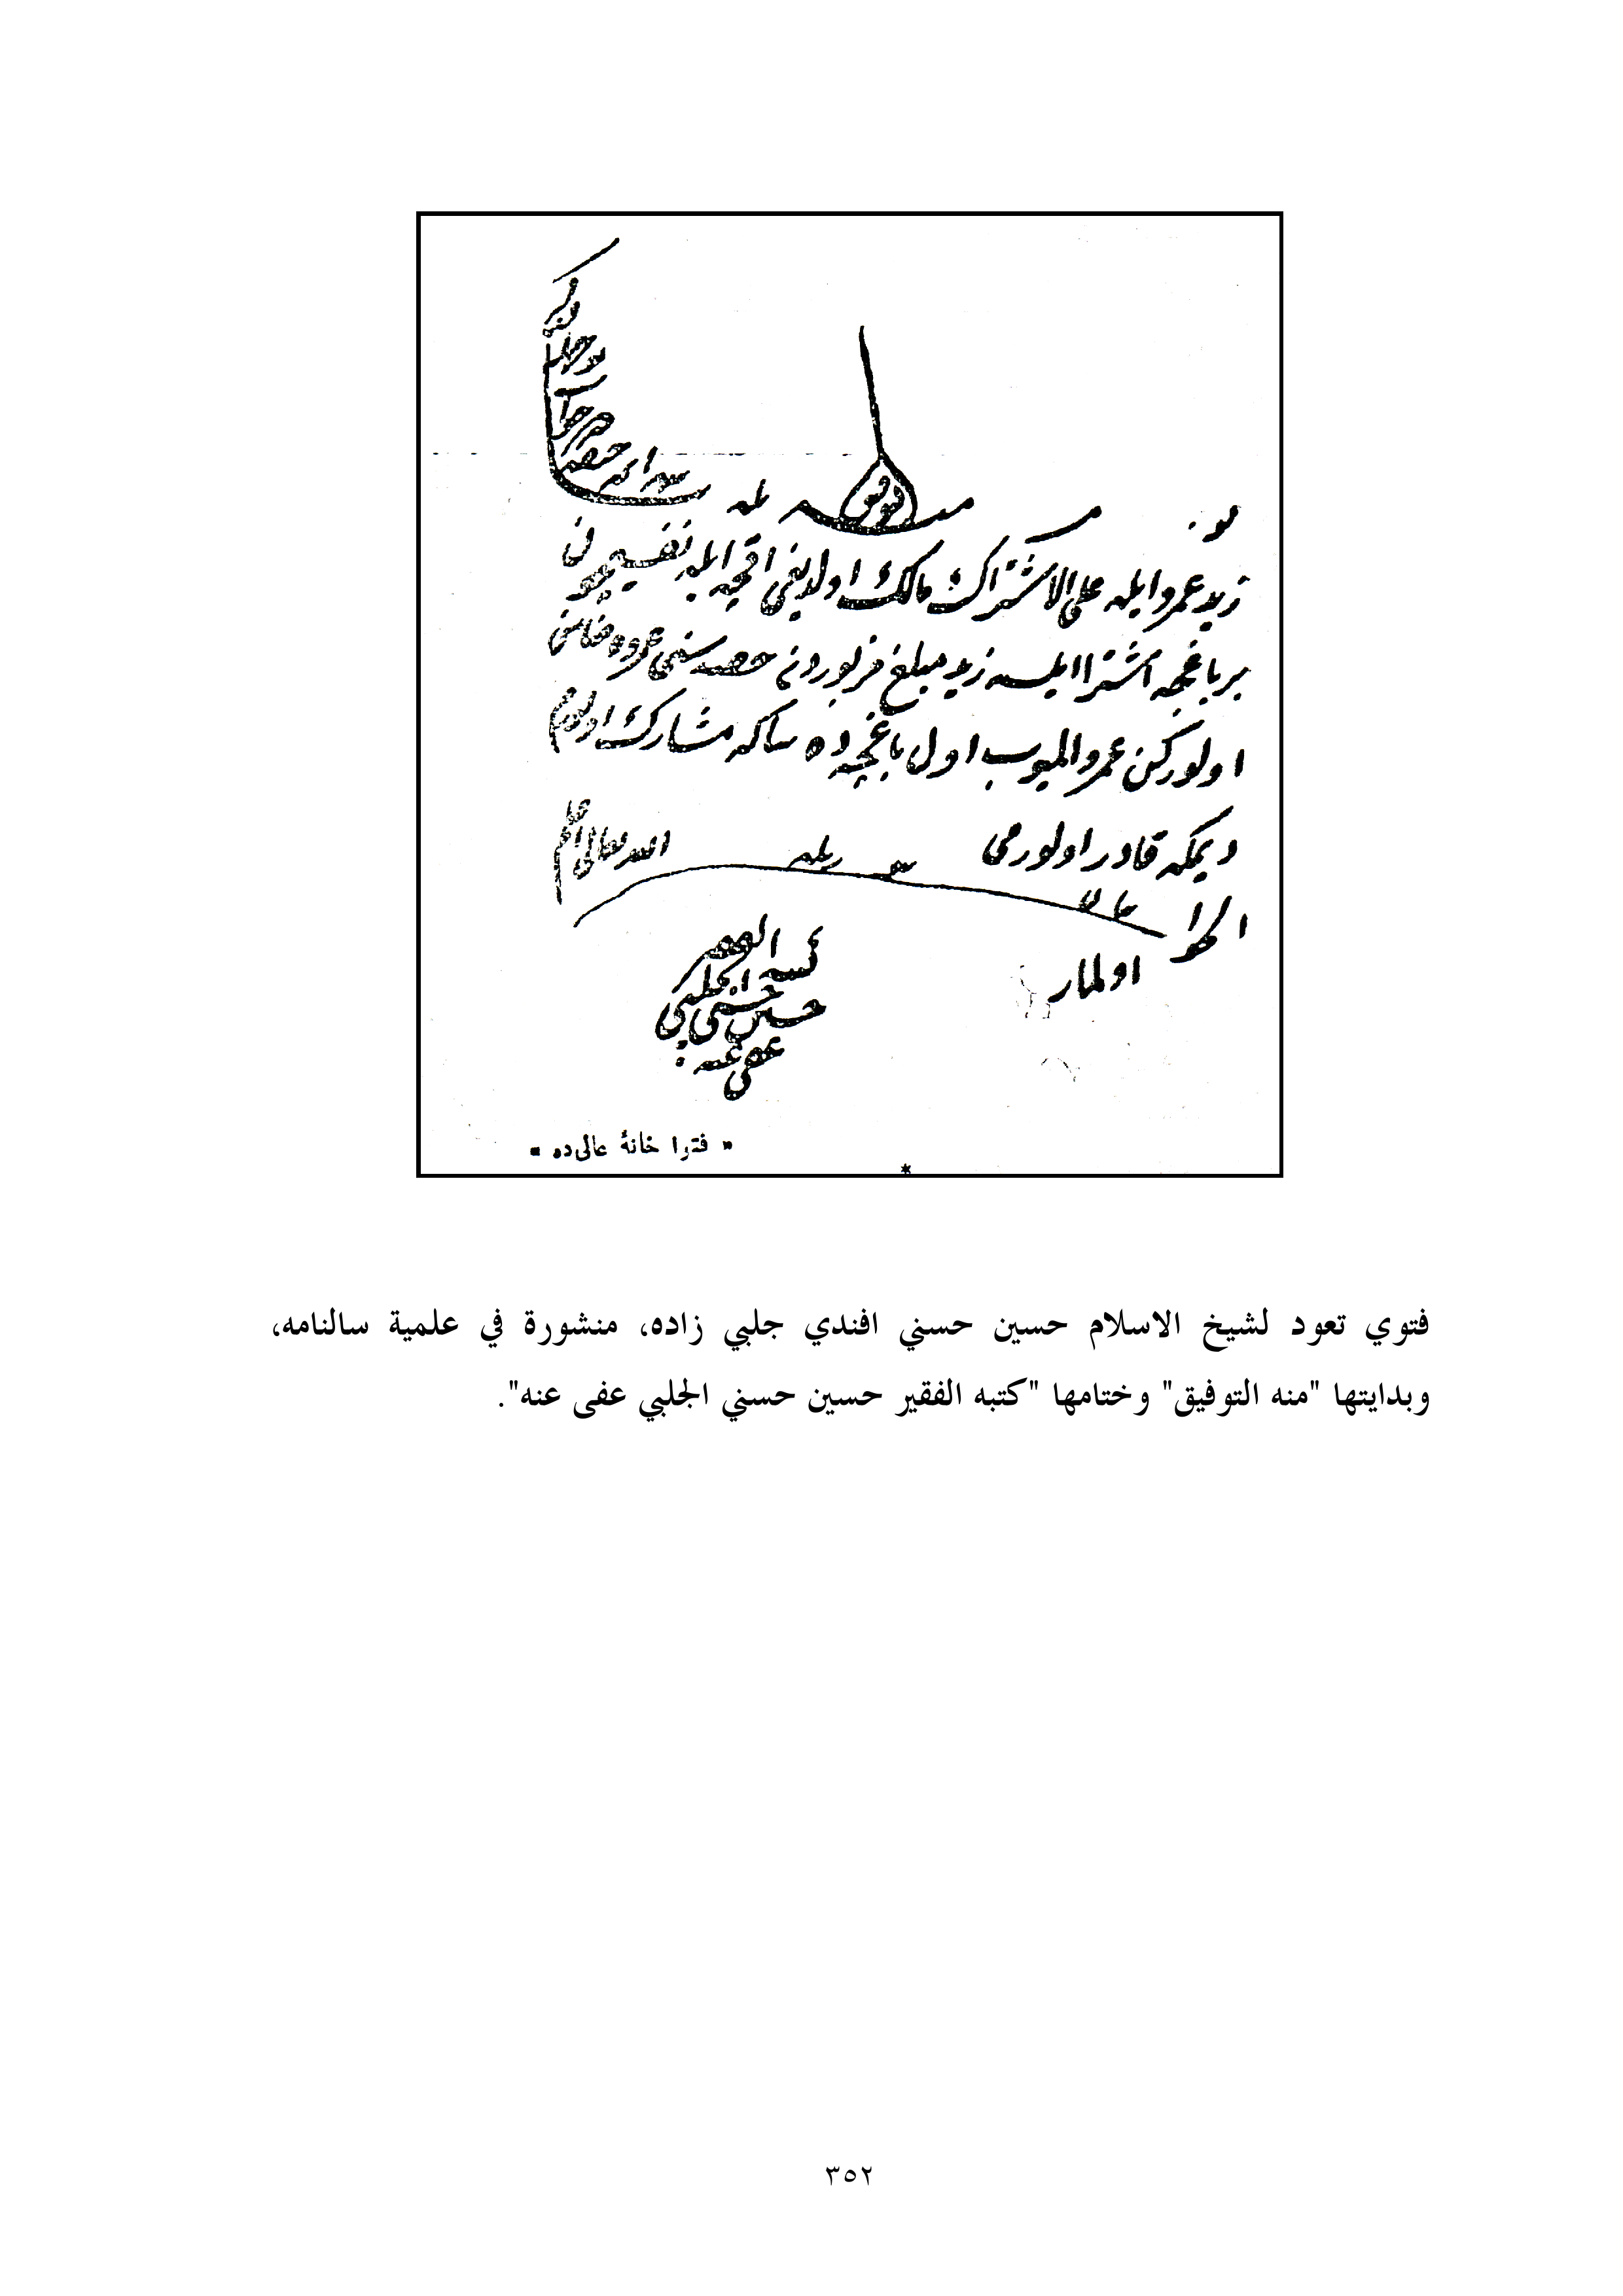 منه التوفيق
زيد عمرو ايله على الاشتراك مالك اولديغى اقچه ايله نفسيچون
بر باغچه اشترا ايلسه زيد مبلغ مزبوردن حصه سنى عمروه ضامن
اولوركن عمرو المیوب اول باغچه ده سكا مشارك اولورم
ديمكه قادر اولورمى الله تعالى اعلم
الجواب
اولماز
كتبه الفقير
حسين حسنى الجلبي
عفى عنه
« فتوا خانهٔ عالى ده »
*
فتوي تعود لشيخ الاسلام حسين حسني افندي جلبي زاده، منشورة في علمية سالنامه،
وبدايتها "منه التوفيق" وختامها "كتبه الفقير حسين حسني الجلبي عفى عنه".
٣٥٢